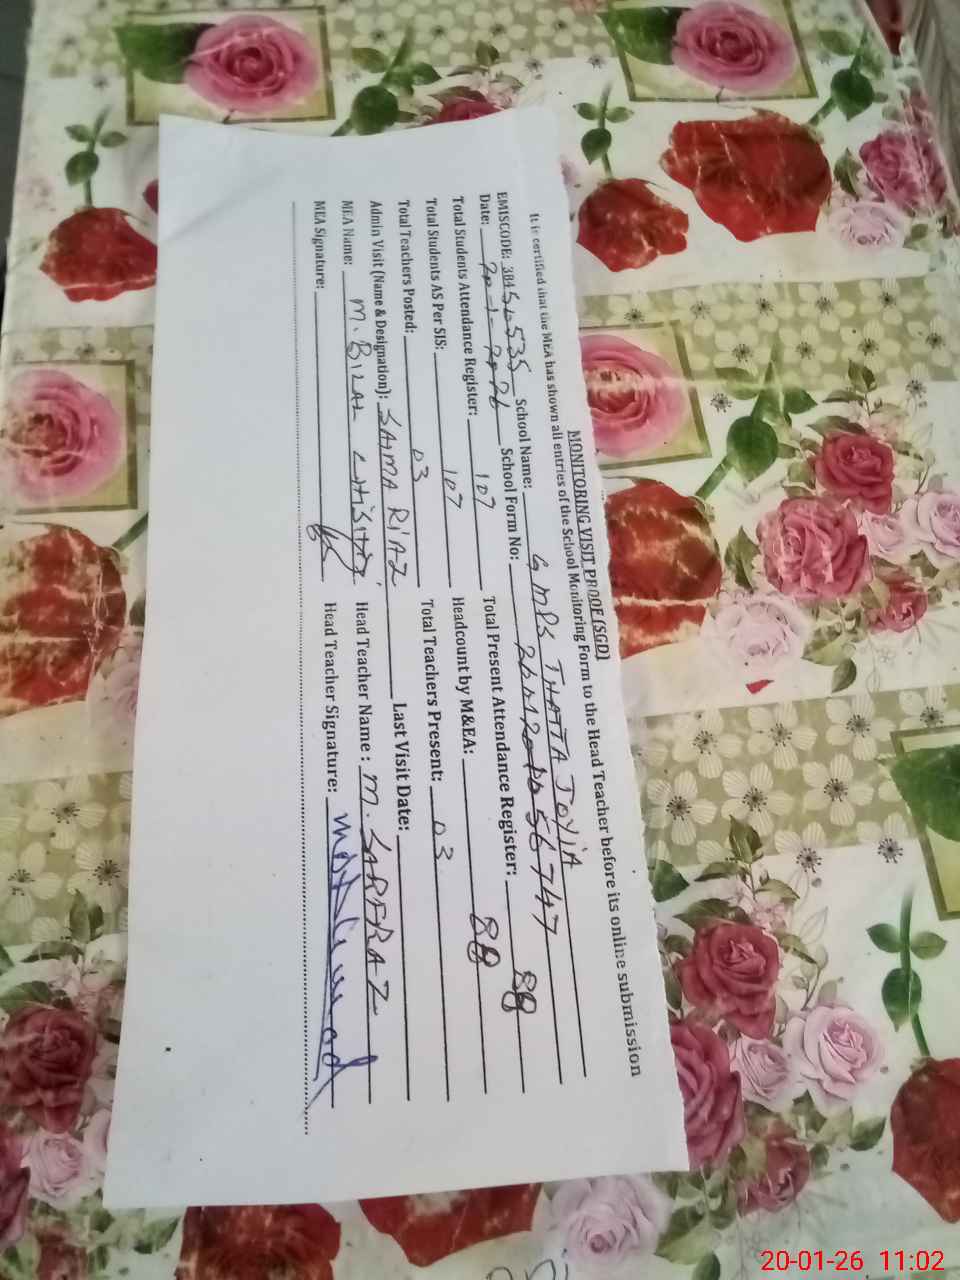 MONITORING VISIT PROOF (SGD)
It is certified that the MEA has shown all entries of the School Monitoring Form to the Head Teacher before its online submission
EMISCODE: 38454535 School Name: GMPS THATTA JOYIA
Date: 20-1-2026 School Form No:
Total Students Attendance Register: 107 Total Present Attendance Register: 88
Total Students AS Per SIS: 107 Headcount by M&EA: 88
Total Teachers Posted: 03 Total Teachers Present: 03
Admin Visit (Name & Designation): SAIMA RIAZ Last Visit Date:
MEA Name: M. BILAL CHISHTI Head Teacher Name: M. SARFRAZ
MEA Signature: Head Teacher Signature:
20-01-26 11:02